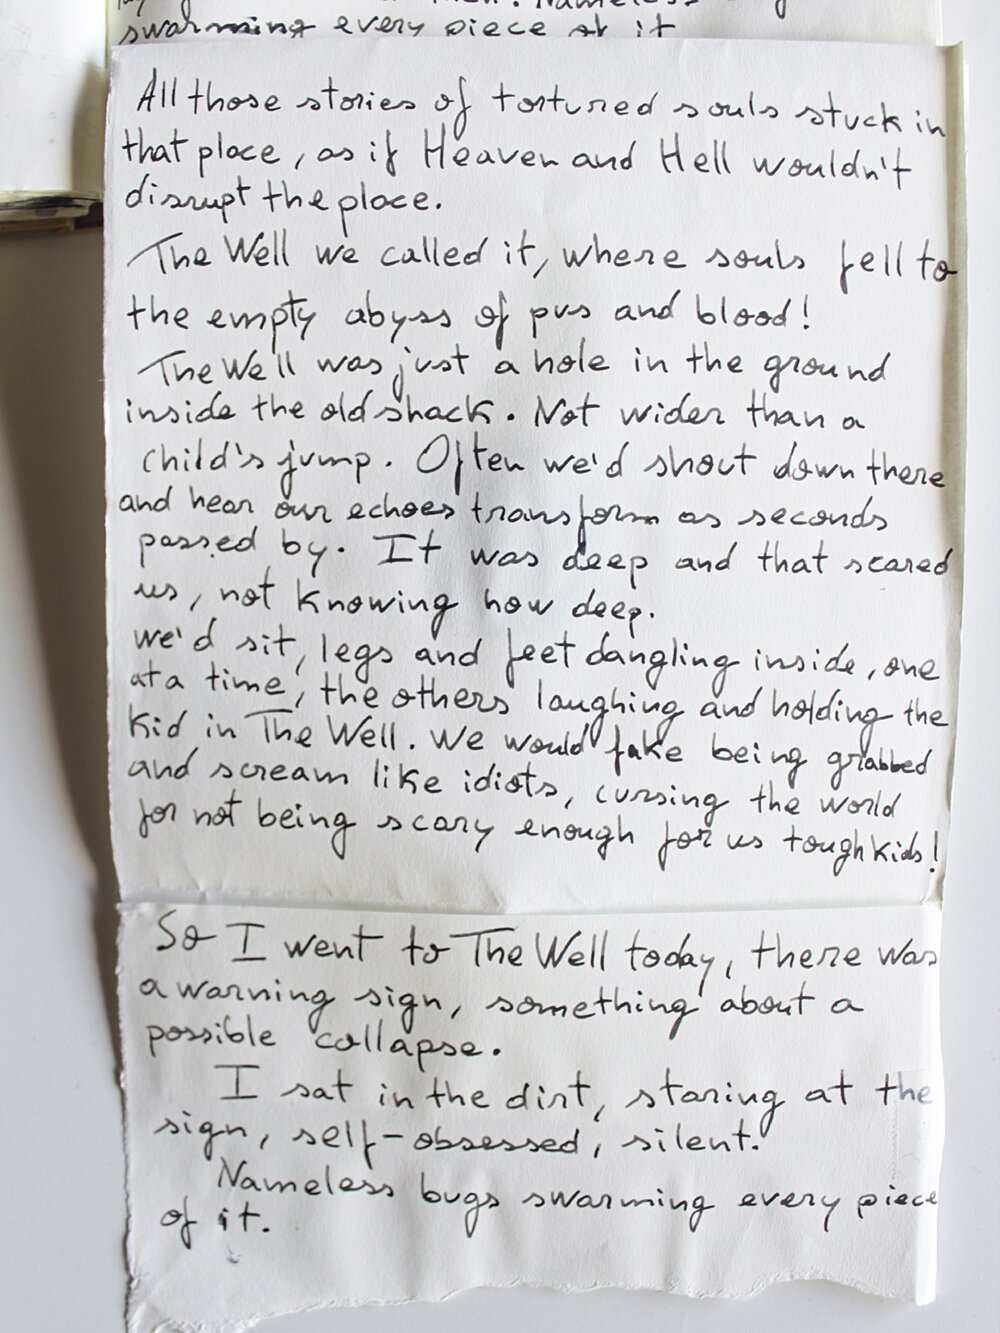 swarming every piece of it
All those stories of tortured souls stuck in
that place, as if Heaven and Hell wouldn't
disrupt the place.
The Well we called it, where souls fell to
the empty abyss of pus and blood!
The Well was just a hole in the ground
inside the old shack. Not wider than a
child's jump. Often we'd shout down there
and hear our echoes transform as seconds
passed by. It was deep and that scared
us, not knowing how deep.
we'd sit, legs and feet dangling inside, one
at a time, the others laughing and holding the
kid in The Well. We would fake being grabbed
and scream like idiots, cursing the world
for not being scary enough for us tough kids!
So I went to The Well today, there was
a warning sign, something about a
possible collapse.
I sat in the dirt, staring at the
sign, self-obsessed, silent.
Nameless bugs swarming every piece
of it.